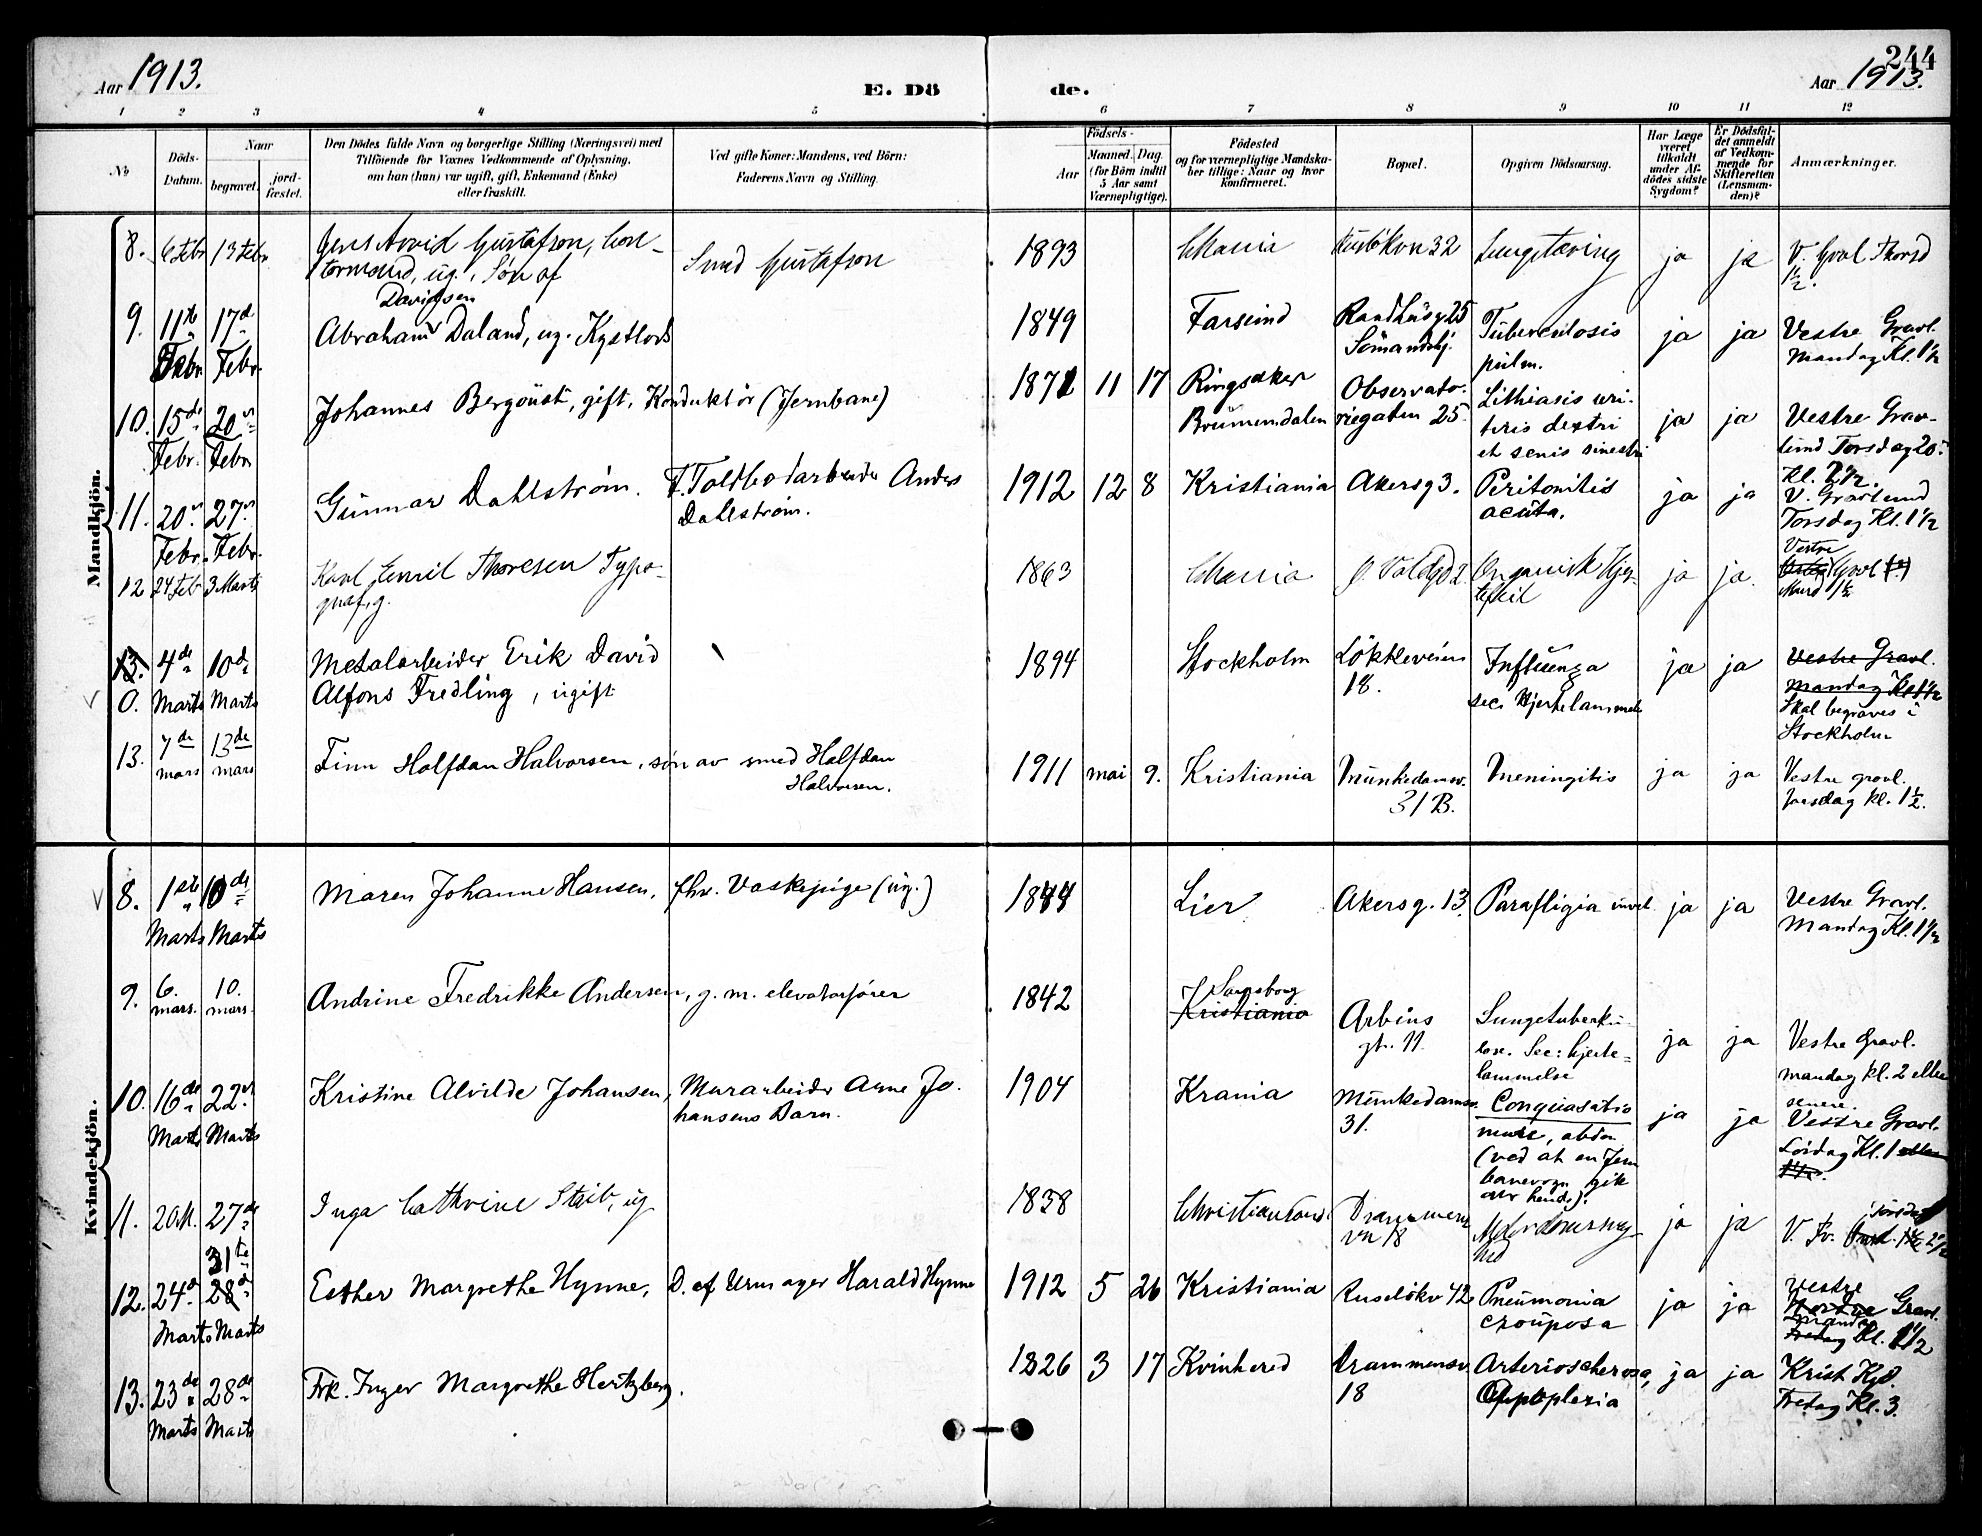 244
Aar 1913.
E. Dö
de.
Aar 1913.
1 2 3 4 5 6 7 8 9 10 11 12
No
Döds-
Datum.
Naar
begravet.
jord-
fæstet.
Den Dödes fulde Navn og borgerlige Stilling (Næringsvei) med
Tilföiende for Voxnes Vedkommende af Oplysning,
om han (hun) var ugift, gift, Enkemand (Enke)
eller fraskilt.
Ved gifte Koner: Mandens, ved Börn:
Faderens Navn og Stilling.
Födsels-
Aar
Maaned.
Dag.
(for Börn indtil
5 Aar samt
Værnepligtige).
Födested
og for værnepligtige Mandska-
ber tillige: Naar og hvor
konfirmeret.
Bopæl.
Opgiven Dödsaarsag.
Har Læge
været
tilkaldt
under Af-
dödes sidste
Sygdom?
Er Dödsfal-
det anmeldt
af Vedkom-
mende for
Skifteretten
(Lensman-
den)?
Anmærkninger.
Mandkjön.
8. 6 Febr 13 Febr. Jens Arvid Gustafson, kon-
tormand, ug., Søn af
Smed Gustafson
1893 Chania 32 Lungetæring ja ja V. Gravl Thorsd
1½.
9. 11te Febr. 17de Febr.
Davidsen
Abraham Daland, ug. Kystlods
1849 Farsund 25
Sömandshj.
Tuberculosis
pulm.
ja ja Vestre Gravl.
Mandag Kl. 1½
10. 15de Febr. 20de Febr.
Johannes Bergquist, gift, Konduktör (Jernbane)
1871 11 17 Ringsaker
Brumunddalen
Observato-
riegaten 25.
Lithiasis uri-
teris dextri
et renis sinistri
ja ja Vestre Grav-
lund Torsdag 20.
Kl. 2½.
11. 20de Febr. 27de Febr.
Gunnar Dahlström. F. Toldbodarbeider Anders
Dahlström.
1912 12 8 Kristiania Akersg 3. Peritonitis
acuta.
ja ja V. Gravlund
Torsdag Kl. 1½
12 24 Feb 3 Marts Karl Emil Thoresen Typo-
graf, g.
1863 Chania Organisk Hjer-
tefeil
ja ja. Vestre
Gravl
1½
13. 4de Marts 10de Marts
0.
Metalarbeider Erik David
Alfons Fredling, ugift
1894 Stockholm Lökkeveien
18.
Influenza
sec. Hjertelammelse
ja ja Vestre Gravl.
Mandag Kl 1½
Skal begraves i
Stockholm
13. 7de mars 13de mars
Finn Halfdan Halvorsen, søn av smed Halfdan
Halvorsen.
1911 mai 9. Kristiania Munkedamsv.
31 B.
Meningitis ja ja Vestre gravl.
torsdag kl. 1½.
Kvindekjön.
8. 1ste Marts 10de Marts
Maren Johanne Hansen, fhv. Vaskepige (ug.)
1844 Lier Akersg. 13. ja ja Vestre Gravl.
Mandag Kl. 1½
9. 6. mars. 10. mars.
Andrine Fredrikke Andersen, g. m. elevatorfører
1842 Sarpsborg
Kristiania
Arbins
gt. 11.
Lungetuberku-
lose. Sec: hjerte-
lammelse
ja ja Vestre Gravl.
mandag kl. 2 eller
senere.
10. 16de Marts 22de Marts
Kristine Alvilde Johansen, Murarbeider Arne Jo-
hansens Barn.
1904 Krania Munkedamsv.
31.
Conquasatio
(ved at en Jern
banevogn gik
over hende).
ja ja Vestre Gravl.
Lördag Kl. 1 eller
1½.
11. 20 M. 27de
Inga Cathrine Steib, ug
1838 Christiansand Drammens
vn 18
Alderdomssvag
hed
ja ja Torsdag
V. 2½
12. 24de Marts 31te 28de Marts
Esther Margrethe Hynne, D. af Urmager Harald Hynne
1912 5 26 Kristiania Ruselökv 42 Pneumonia
crouposa
ja ja Vestre
Nordre Gravl.
Mandag
Fredag Kl. 1½
13. 23de Marts 28de Marts
Frk. Inger Margrethe Hertzberg.
1826 3 17 Kvinhered Drammensv
18
Arteriosclerose,
Apoplexia
ja ja Krist Kgd.
Fredag Kl. 3.